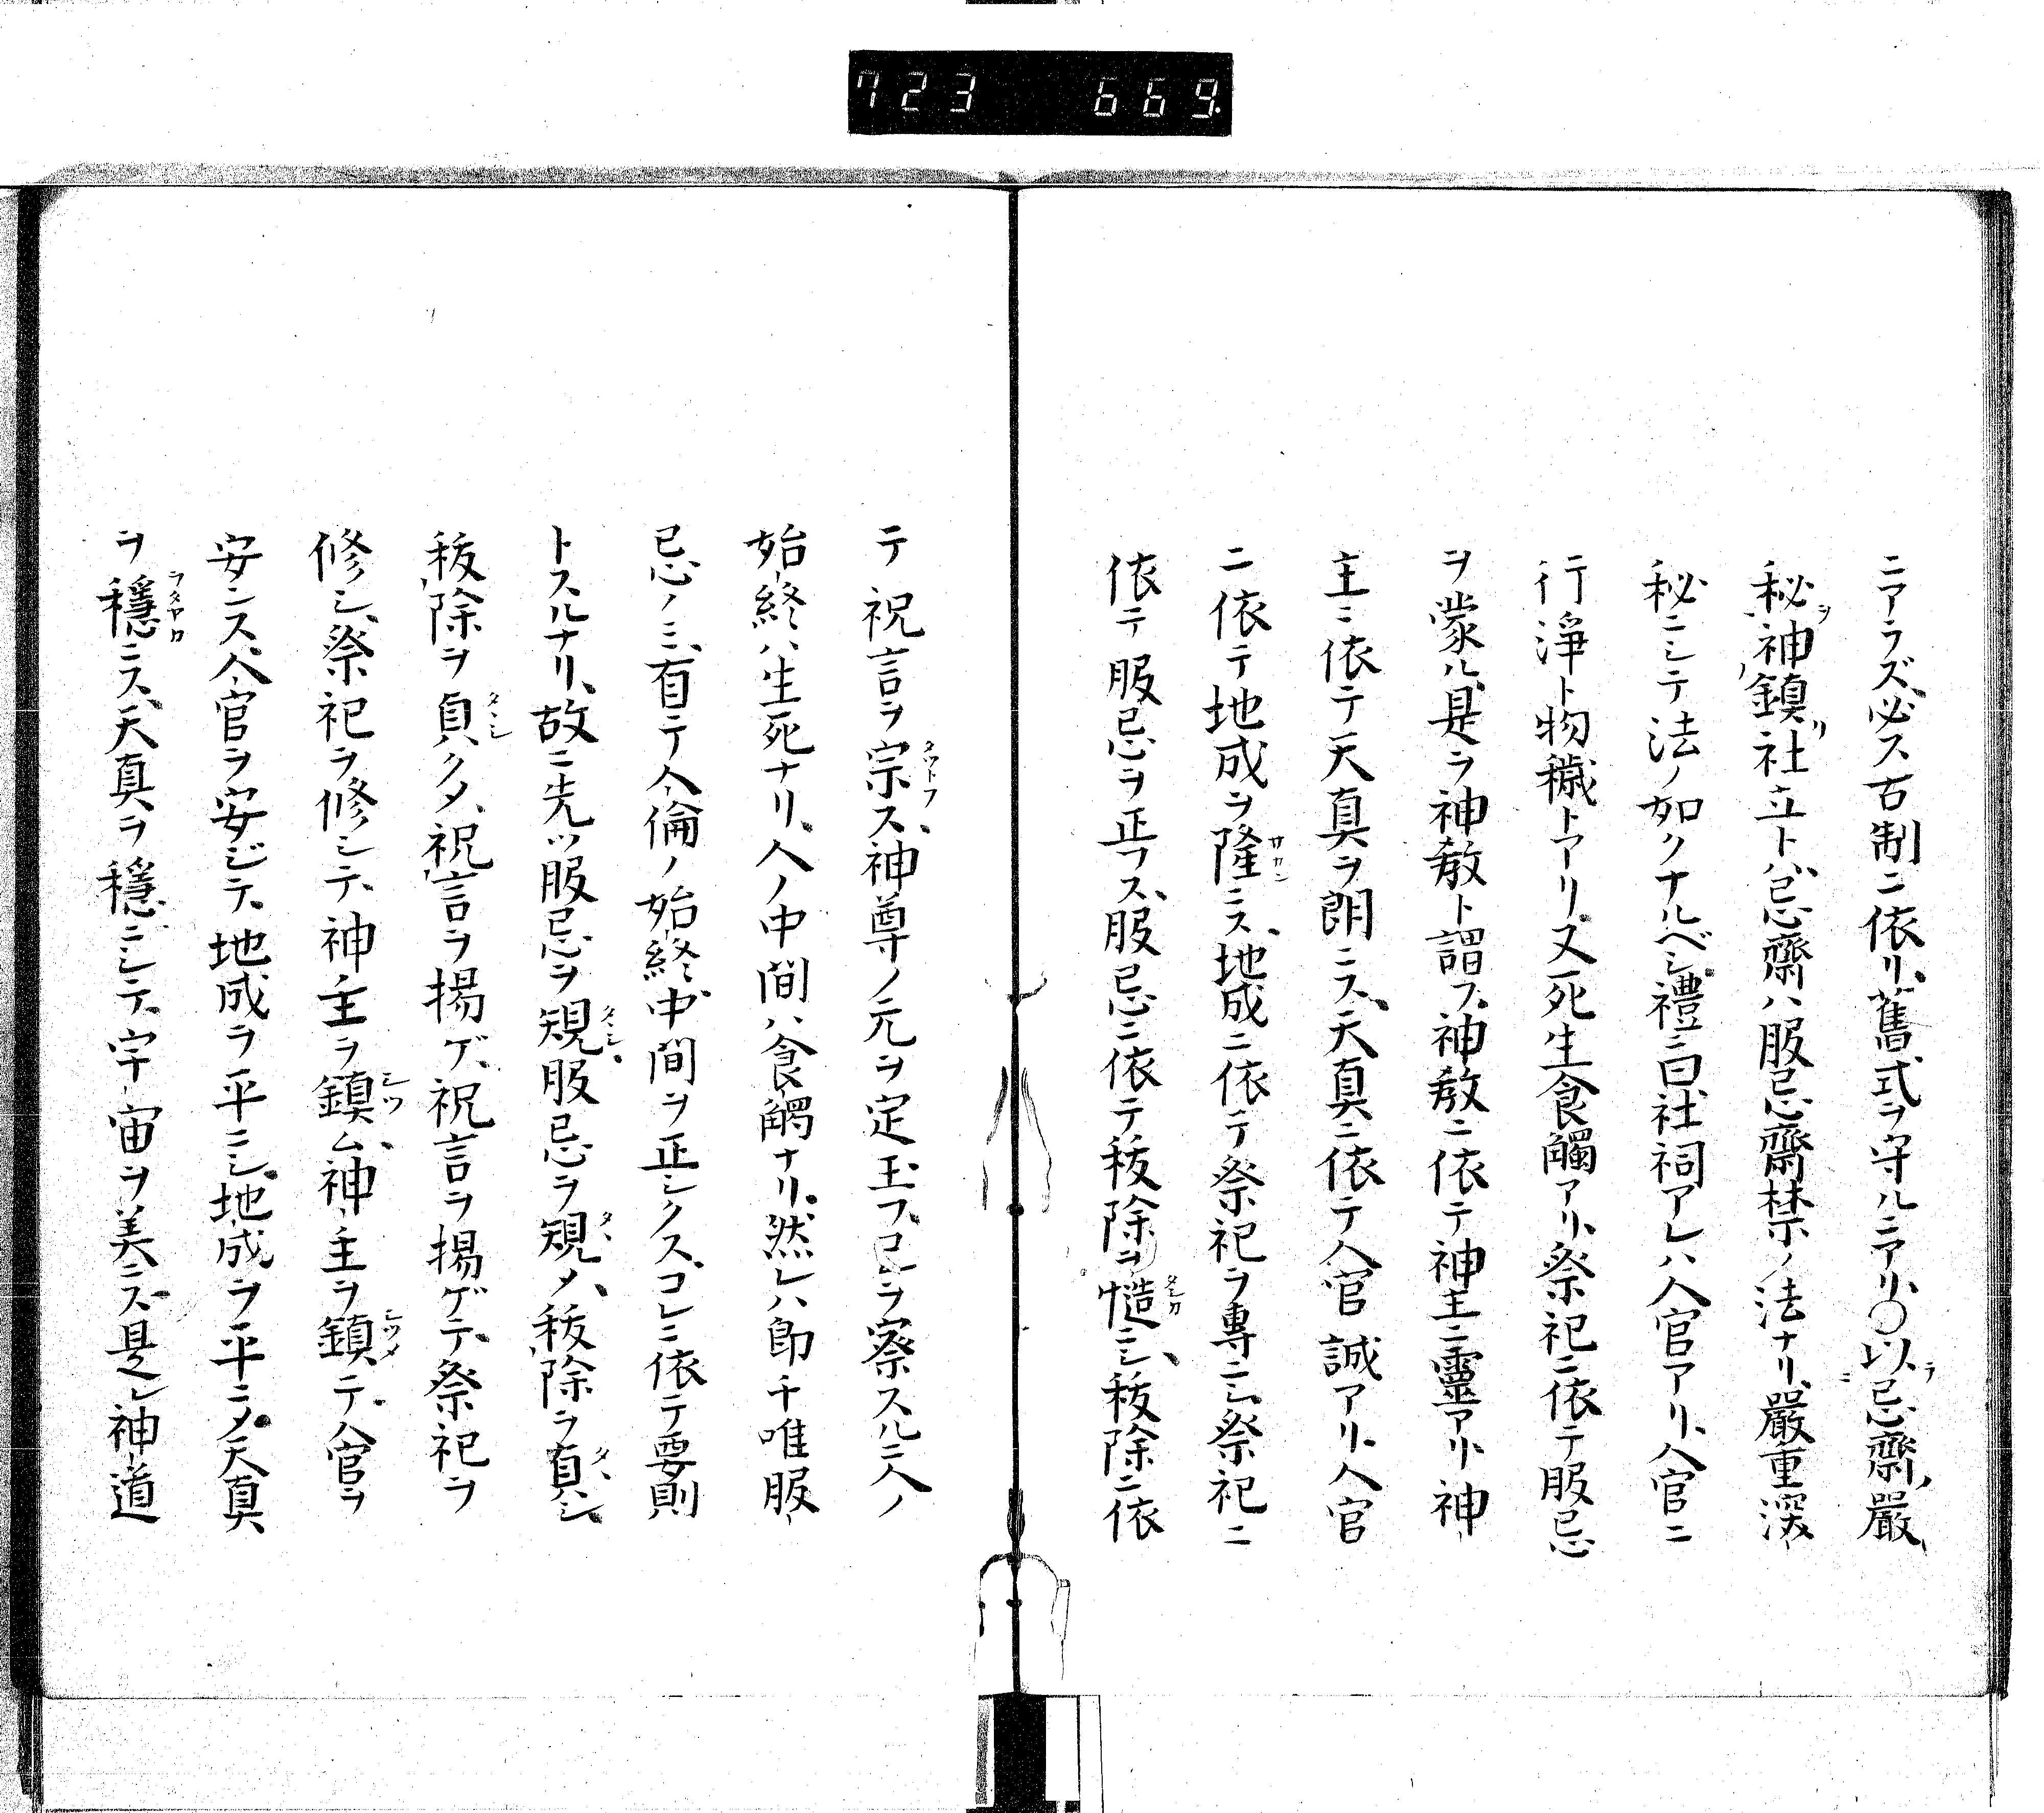 723 669
ニアラズ、必ス古制ニ依リ、舊式ヲ守ルニアリ、〇以忌齋嚴
秘神鎮社立トハ、忌齋ハ服忌齋禁ノ法ナリ、嚴重深
秘ニシテ法ノ如クナルベシ、禮ニ曰、社祠アレハ人官アリ、人官ニ
行淨ト物穢トアリ、又死生食觸アリ、祭祀ニ依テ服忌
ヲ蒙ル、是ヲ神教ト謂フ、神教ニ依テ神主ニ靈アリ、神
主ニ依テ天真ヲ朗ニス、天真ニ依テ人官誠アリ、人官
ニ依テ地成ヲ隆ニス、地成ニ依テ祭祀ヲ專ニシ、祭祀ニ
依テ服忌ヲ正フス、服忌ニ依テ秡除ヲ慥ニシ、秡除ニ依
テ祝言ヲ宗ス、神尊ノ元ヲ定玉フ、是ヲ察スルニ人ノ
始終ハ生死ナリ、人ノ中間ハ食觸ナリ、然レハ即チ唯服
忌ノミ有テ人倫ノ始終中間ヲ正シクス、コレニ依テ要則
トスルナリ、故ニ先ツ服忌ヲ規服忌ヲ規メ、秡除ヲ貞シ
秡除ヲ貞クメ、祝言ヲ揚ゲ、祝言ヲ揚ゲテ、祭祀ヲ
修シ、祭祀ヲ修シテ、神主ヲ鎮ム、神主ヲ鎮テ、人官ヲ
安ンス、人官ヲ安ジテ、地成ヲ平ニシ、地成ヲ平ニメ、天真
ヲ穩ニス、天真ヲ穩ニシテ、宇宙ヲ美ニス、是レ神道